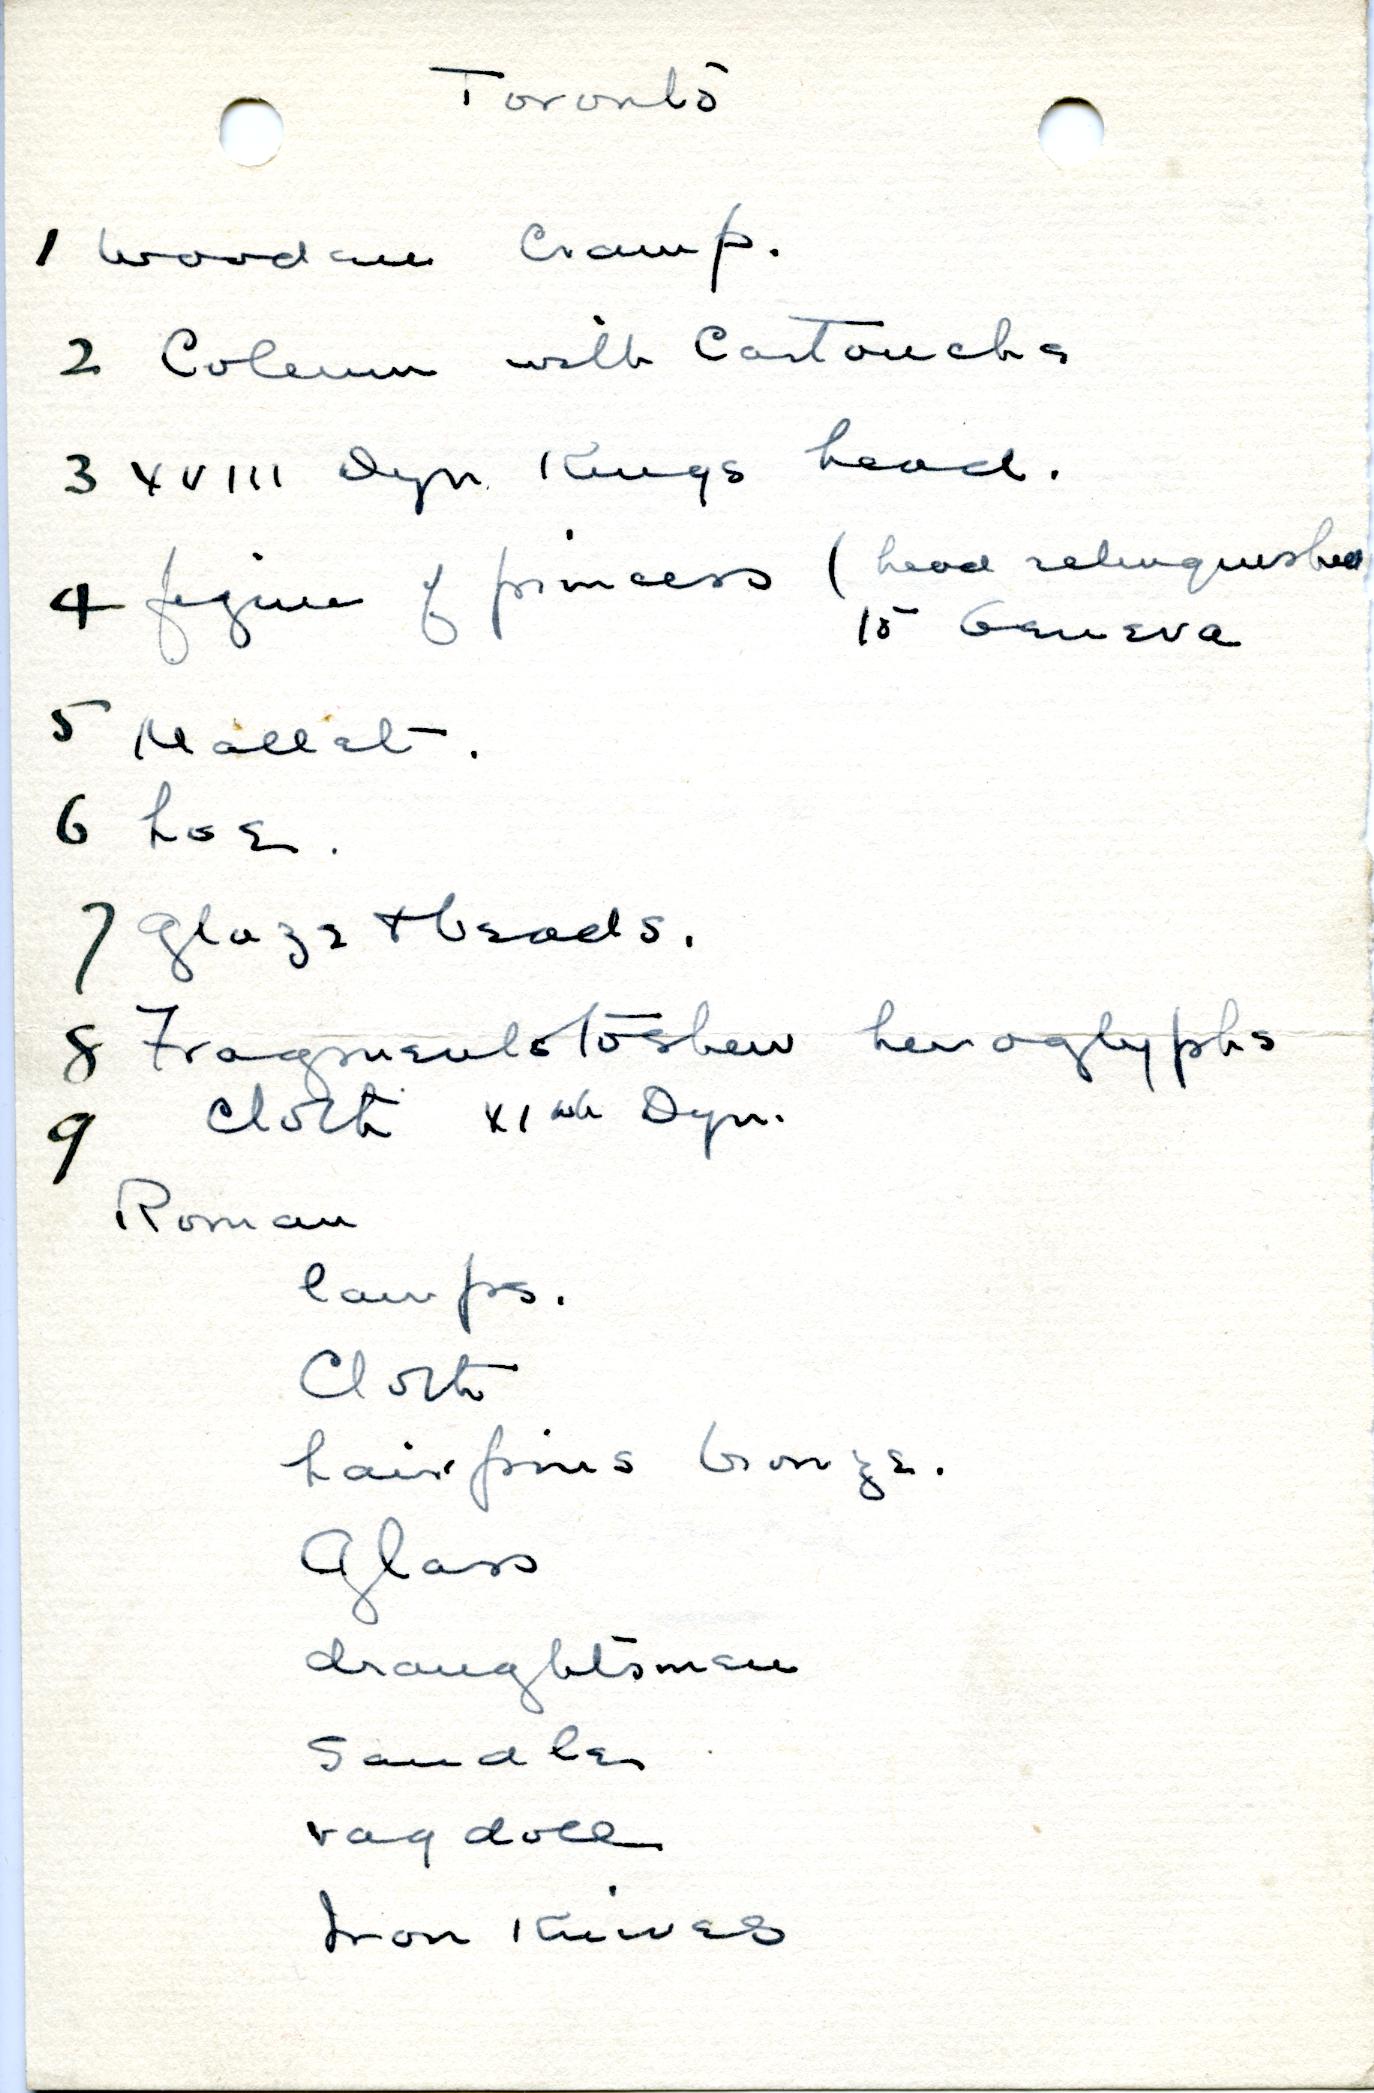 Toronto
1 Wooden Cramp.
2 Column with Cartouche
3 XVIII Dyn Kings head.
4 figure of princess (head relinquished
to Geneva
5 Mallet.
6 hoe.
7 glaze + beads.
8 Fragments to shew heiroglyphs
9 Cloth XIth Dyn.
Roman
lamps.
Cloth
hairpins bronze.
Glass
draughtsmen
Sandles
rag doll
Iron Knives